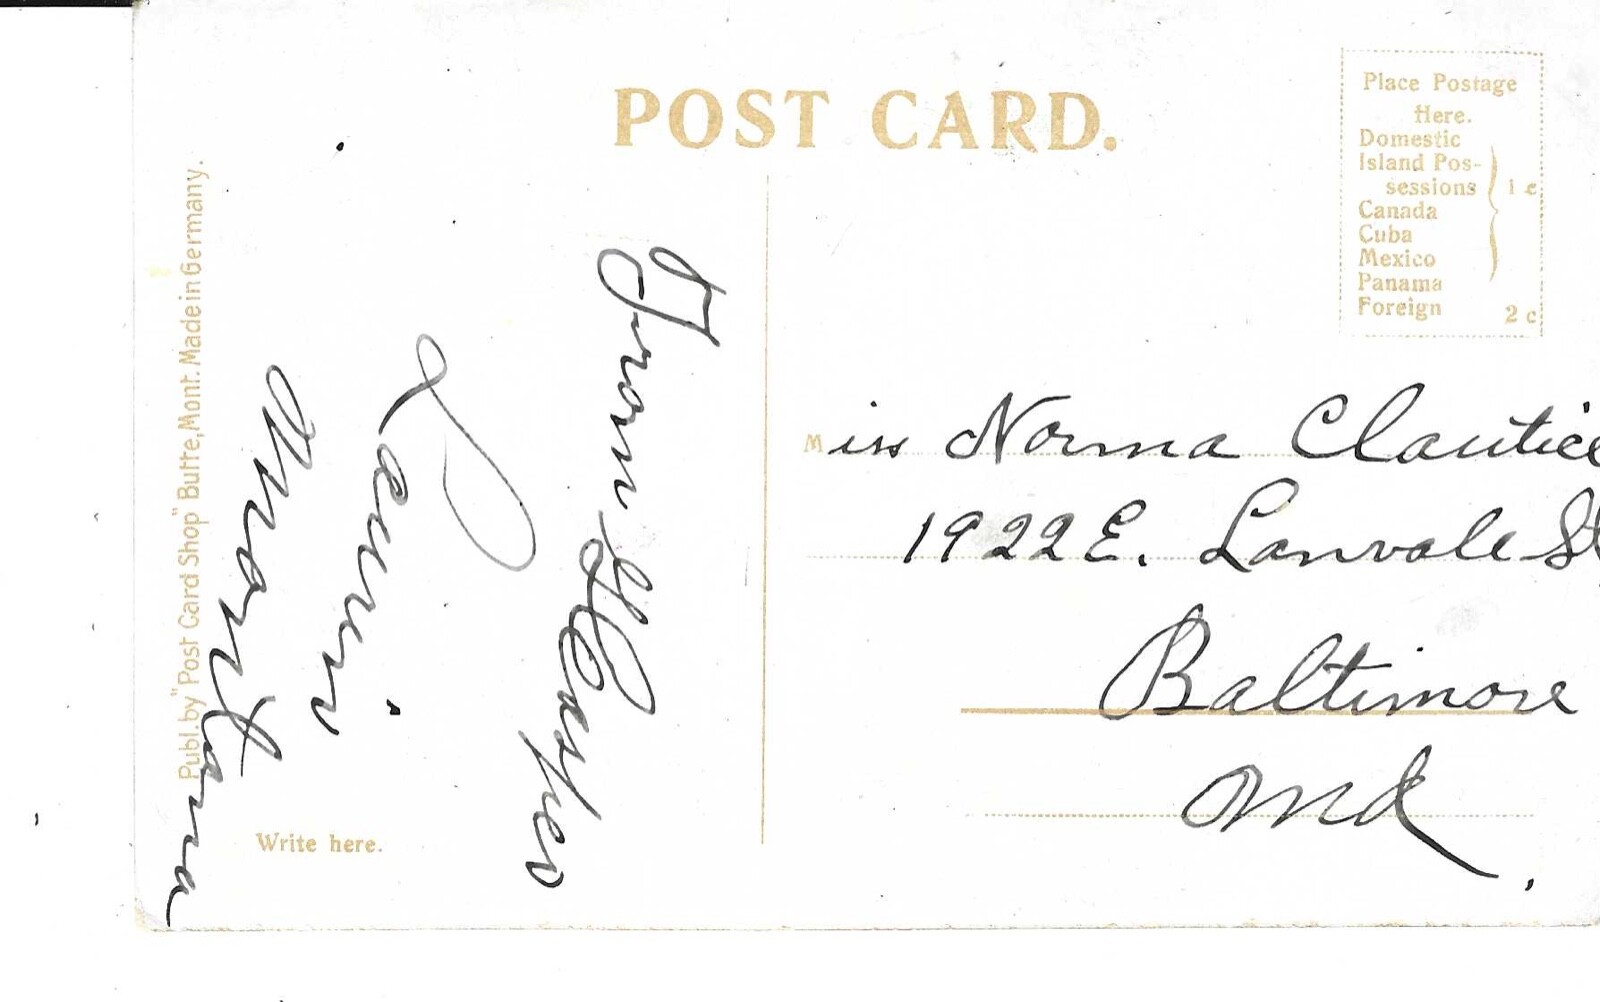 POST CARD.
Place Postage
Here.
Domestic
Island Pos-
sessions
Canada
Cuba
Mexico
Panama
1 c
Foreign 2 c
Publ. by "Post Card Shop" Butte, Mont. Made in Germany.
From
Laurin
Montana
Write here.
Miss Norma Clautice
1922 E. Lanvale St
Baltimore
Md.